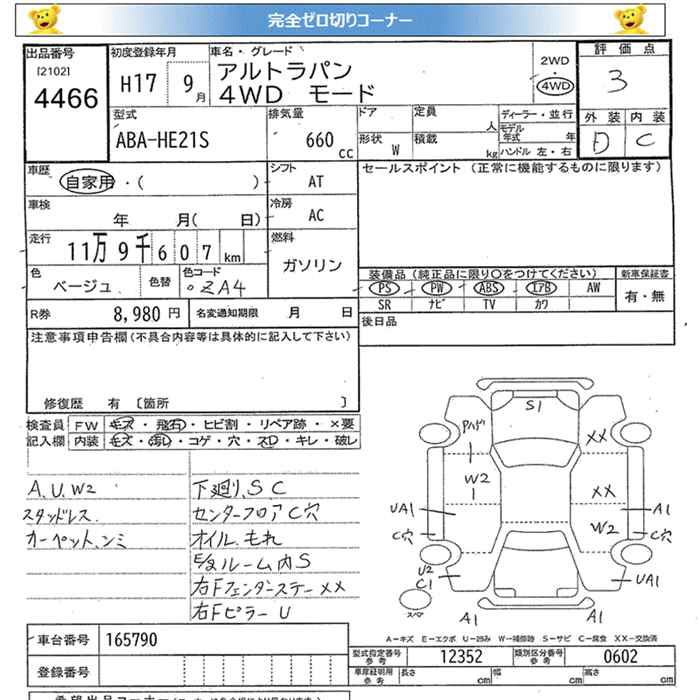 完全ゼロ切りコーナー
出品番号 初度登録年月 車名・グレード 評価点
[2102] 4466 H17 9月 アルトラパン 2WD 3
4WD モード 4WD
外装 内装
D C
型式 排気量 ドア 定員 人 ディーラー・並行
ABA-HE21S 660cc 形状 W 積載 kg モデル年式 年
ハンドル 左・右
車歴 シフト セールスポイント (正常に機能するものに限ります)
自家用・( ) AT
車検 冷房
年 月( 日) AC
走行 燃料
11万9千607km ガソリン
色 色替 色コード 装備品 (純正品に限り○をつけてください) 新車保証書
ベージュ ZA4 PS PW ABS エアB AW 有・無
SR ナビ TV カワ
R券 8,980円 名変通知期限 月 日 後日品
注意事項申告欄 (不具合内容等は具体的に記入して下さい)
修復歴 有 〔箇所 〕
検査員 FW キズ・飛石・ヒビ割・リペア跡・×要
記入欄 内装 キズ・汚れ・コゲ・穴・スレ・キレ・破レ
A.U.W2 下廻り.S C
スタッドレス. センターフロアC穴
カーペット.シミ オイル.もれ
E/gルーム内S
右Fフェンダーステー××
右FピラーU
S1
××
W2
××
UA1 A1
C穴 W2 C穴
U2
C1 UA1
A1 A1
A-キズ E-エクボ U-凹み W-補修跡 S-サビ C-腐食 XX-交換済
車台番号 165790
型式指定番号 参考 12352 類別区分番号 参考 0602
登録番号 車庫証明用 参考 長さ cm 幅 cm 高さ cm